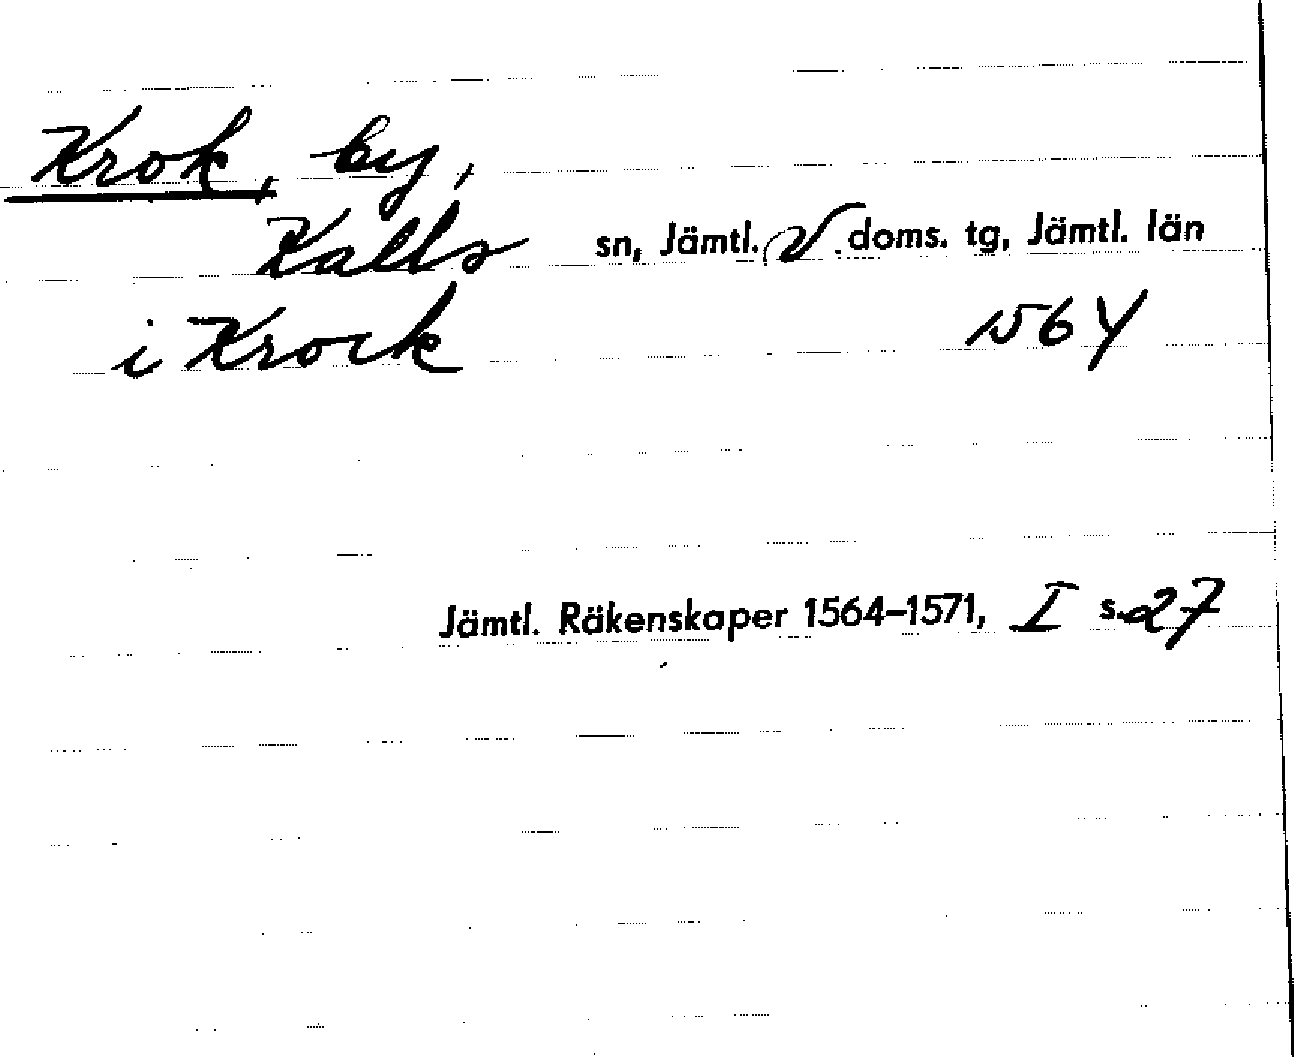 Krok, by,
Kalls sn, Jämtl. V. doms. tg, Jämtl. län
i Krock 1564
Jämtl. Räkenskaper 1564–1571, I s. 27